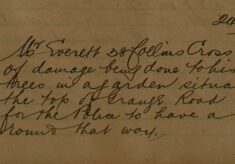 24
Mr Everett 38 Collins Cross
of damage being done to his
trees in a garden situa
the top of Grange Road
for the Police to have a
round that way.